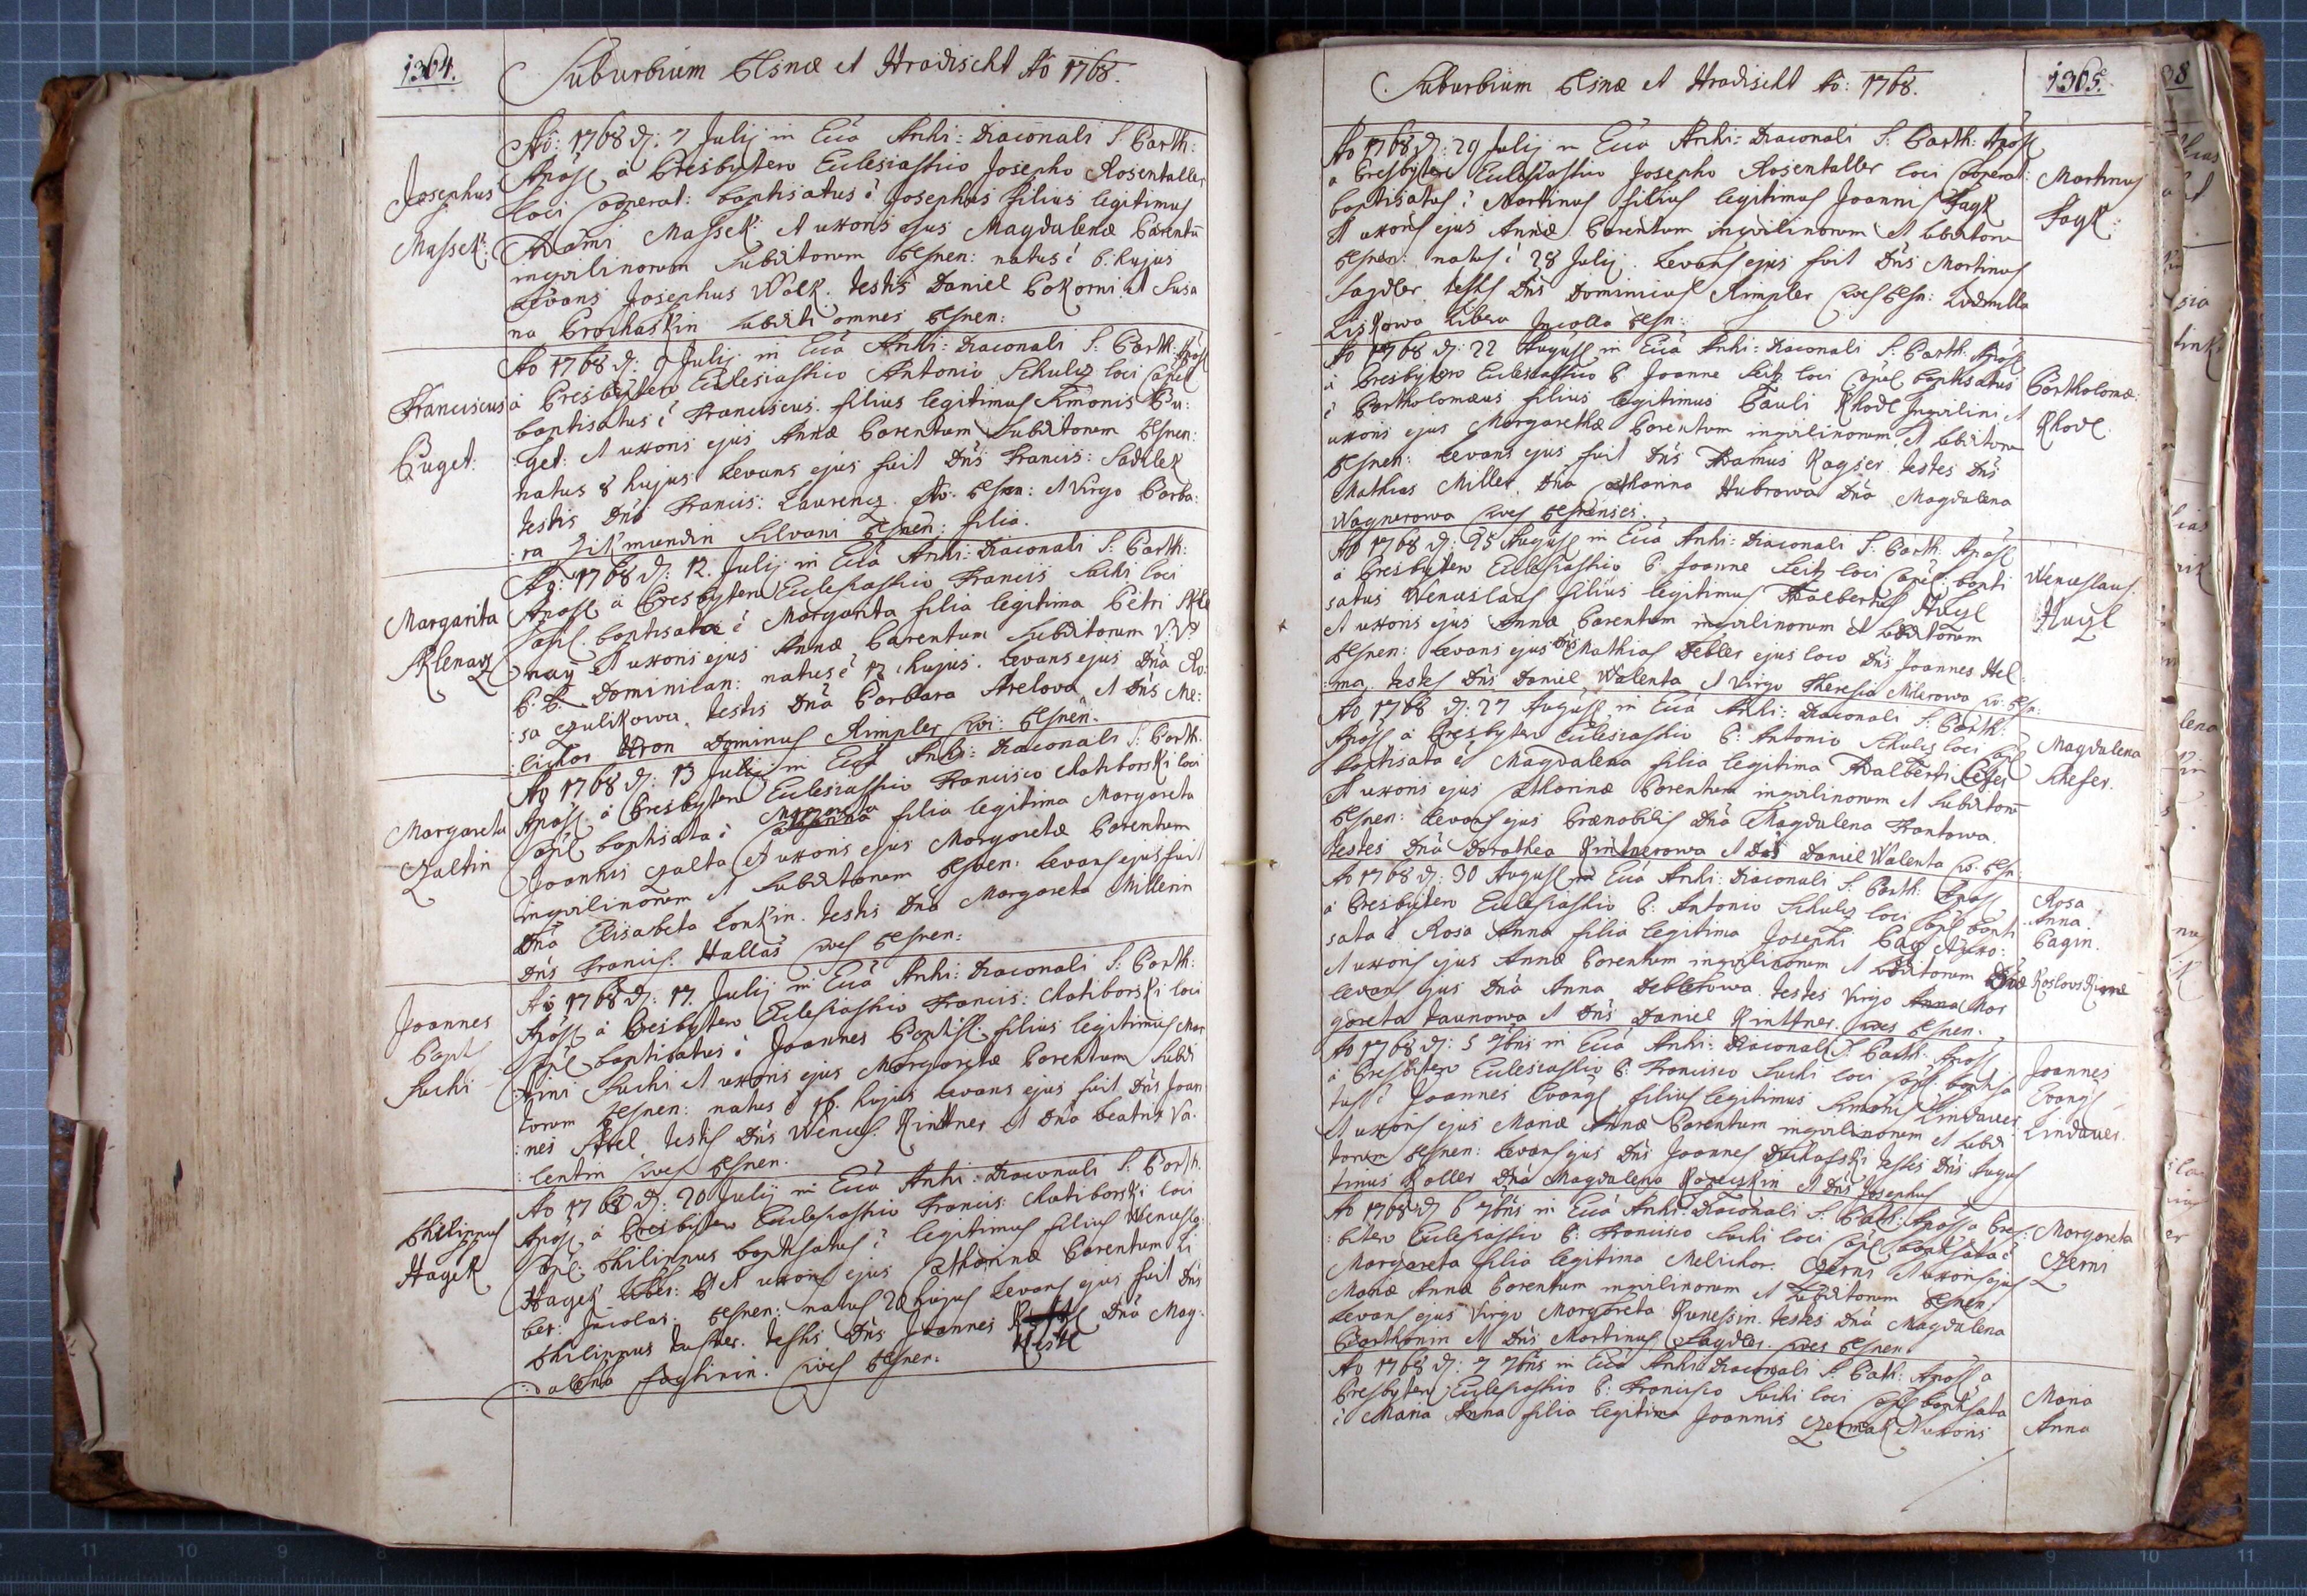 1364.
Suburbium Plsnæ et Hradischt Aõ 1768.
Josephus
Massek:
Aõ: 1768 d: 7 Julij in Eccã Archi: Diaconali S: Barth:
Apos̃ à Presbytero Ecclesiastico Josepho Rosentaller
loci Cooperat: baptisatus ẽ Josephus filius legitimus
Adami Massek: et uxoris ejus Magdalenæ Parentũ
inquilinorum Subditorum Plsnen: natus ẽ 6. hujus
Levans Josephus Wolk. testis Daniel Pokorni et Susa
na Prochaskin subditi omnes Plsnen:
Franciscus
Puget:
Ao 1768 d: 9 Julij in Eccã Archi: Diaconali S: Barth: Apos̃
à Presbytero Ecclesiastico Antonio Schulz loci Capel
baptisatus ẽ Franciscus filius legitimus Simonis Pu:
:get: et uxoris ejus Annæ Parentum Subditorum Plsnen:
natus 8 hujus Levans ejus fuit Dñs Francis: Sadilek
testis Dñs Francis: Laurencz. Plsnen: et Virgo Barba:
:ra Zikmundin Silvani Plsnen: filia.
Margarita
Sklenarz
Ao: 1768 d: 12. Julij in Eccã Archi: Diaconali S: Barth:
Apos̃ à Presbytero Ecclesiastico Francis Suchi loci
Capl. baptisata ẽ Margarita filia legitima Petri Skle
narz et uxoris ejus Annæ Parentum Subditorum V:V:
P. P. Dominican: natus ẽ 12 hujus. Levans ejus Dña Ro:
:sa Czulikowa. testis Dña Barbara Arelova et Dñs Me:
:lichor Dominus Rimpler Plsnen.
Margareta
Czaltin
Ao 1768 d: 13 Julij in Eccã Archi: Diaconali S: Barth.
Apos̃ à Presbytero Ecclesiastico Francisco Ratiborski loci
Capl baptisata ẽ Margareta filia legitima Margareta
Joannis Czalta et uxoris ejus Margaretæ Parentum
inquilinorum et Subditorum Plsnen: Levans ejus fuit
Dña Elisabeta Lonkin. testis Dña Margareta Millerin
Dñs Francis: Hallas cives Plsnen:
Joannes
Bapt
Suchi
Ao 1768 d: 17. Julij in Eccã Archi: Diaconali S: Barth:
Apos̃ à Presbytero Ecclesiastico Francis: Ratiborski loci
Capl baptisatus ẽ Joannes Baptist. filius legitimus Mar
:tini Suchi et uxoris ejus Margaretæ Parentum Subdi
torum Plsnen: natus ẽ 16. hujus Levans ejus fuit Dñs Joan
:nes Arel testis Dñs Wences. Rinttner et Dña beatrix Va.
:lentin cives Plsnen.
Philippus
Hagek
Ao 1768 d: 20 Julij in Eccã Archi: Diaconali S: Barth.
Apos̃ à Presbitero Ecclesiastico Francis: Ratiborski loci
Capl: Philippus baptisatus ẽ legitimus filius Wencesla:
Hagek et uxoris ejus Catharinæ Parentum Li
ber: Incolar. Plsnen: natus 20 hujus Levans ejus fuit Dñs
Philippus testis Dñs Joannes Dña Mag:
:dalena cives Plsnen:
1365.
Suburbium Plsnæ et Hradischt Ao: 1768.
Martinus
Fagk:
Ao 1768 d: 29 Julij in Eccã Archi: Diaconali S: Barth: Apos̃
à Presbytero Ecclesiastico Josepho Rosentaller loci Cooperat:
baptisatus ẽ Martinus filius legitimus Joannis Fagk
et uxoris ejus Annæ Parentum inquilinorum et subditorum
Plsnen: natus ẽ 28 Julij. Levans ejus fuit Dñs Martinus
Sagdler. testes Dñs Dominicus Rimpler Cives Plsn: Ludmilla
Liskowa Libera Incolla Plsn:
Bartholomæ:
Khodl.
Ao 1768 d: 22 August in Eccã Archi: Diaconali S: Barth: Apos̃
à Presbytero Ecclesiastico P. Joanne Seitz loci Capel baptisatus
ẽ Bartholomæus filius legitimus Pauli Khodl Inquilini et
uxoris ejus Margarethæ Parentum inquilinorum et subditorum
Plsnen: Levans ejus fuit Dñs Adamus Kayser testes Dñs
Mathias Miller, Dña Catharina Hubrowa Dña Magdalena
Wagnerowa Cives Plsnenses.
Wenceslaus
Ao 1768 d: 25 August in Eccã Archi: Diaconali S: Barth: Apos̃
à Presbytero Ecclesiastico P. Joanne Seitz loci Capel: bapti
satus Wenceslaus filius legitimus Adalberti
et uxoris ejus Annæ Parentum inquilinorum et subditorum
Plsnen: Levans ejus Dñs Mathias Debler ejus loco Dñs Joannes Hel:
:ma. testes Dñs Daniel Walenta et Virgo Theresia Milerowa Plsn:
Magdalena
Schefer.
Ao 1768 d: 27 August in Eccã Archi: Diaconali S: Barth:
Apos̃ à Presbytero Ecclesiastico P: Antonio Schulz loci Capl
baptisata ẽ Magdalena filia legitima Adalberti
et uxoris ejus Catharinæ Parentum inquilinorum et Subditorũ
Plsnen: Levans ejus Prænobilis Dña Magdalena Frantowa.
testes Dña Dorothea Rintnerowa et Dñs Daniel Walenta Plsn:
Rosa
Anna
Pagin.
Ao 1768 d: 30 August in Eccã Archi: Diaconali S: Barth: Apos̃
à Presbytero Ecclesiastico P: Antonio Schulz loci Capl bapti
sata ẽ Rosa Anna filia legitima Josephi
et uxoris ejus Annæ Parentum inquilinorum et subditorum Dñæ Koslovskianæ
Levans ejus Dña Anna Deblerowa. testes Virgo Anna Mar
gareta Taunowa et Dñs Daniel Rinttner. cives Plsnen.
Joannes
Evang̃
Lindauer.
Ao 1768 d: 5 7bris in Eccã Archi: Diaconali S: Barth: Apos̃
à Presbitero Ecclesiastico P: Francisco Suchi loci Capl: baptisa
tus ẽ Joannes Evang̃ filius legitimus Simonis Lindauer
et uxoris ejus Mariæ Annæ Parentum inquilinorum et subdi
torum Plsnen: Levans ejus Dñs Joannes Duchafski testis Dñs Augus
tinus Koller Dña Magdalena et Dñs Josephus
Margareta
Czerni
Ao 1768 d: 6 7bris in Eccã Archi: Diaconali S: Barth: Apos̃ à Pres:
:bitero Ecclesiastico P: Francisco Suchi loci Capl baptisata ẽ
Margareta filia legitima Melichor. Czerni et uxoris ejus
Mariæ Annæ Parentum inquilinorum et Subditorum Plsnen:
Levans ejus Virgo Margareta Runessin. testes Dña Magdalena
Barthonin et Dñs Martinus Sagdler. cives Plsnen.
Maria
Anna
Ao 1768 d: 7 7bris in Eccã Archi: Diaconali S: Barth: Apos̃ à
Presbytero Ecclesiastico P: Francisco Suchi loci Capl baptisata
ẽ Maria Anna filia legitima Joannis Czermak et uxoris